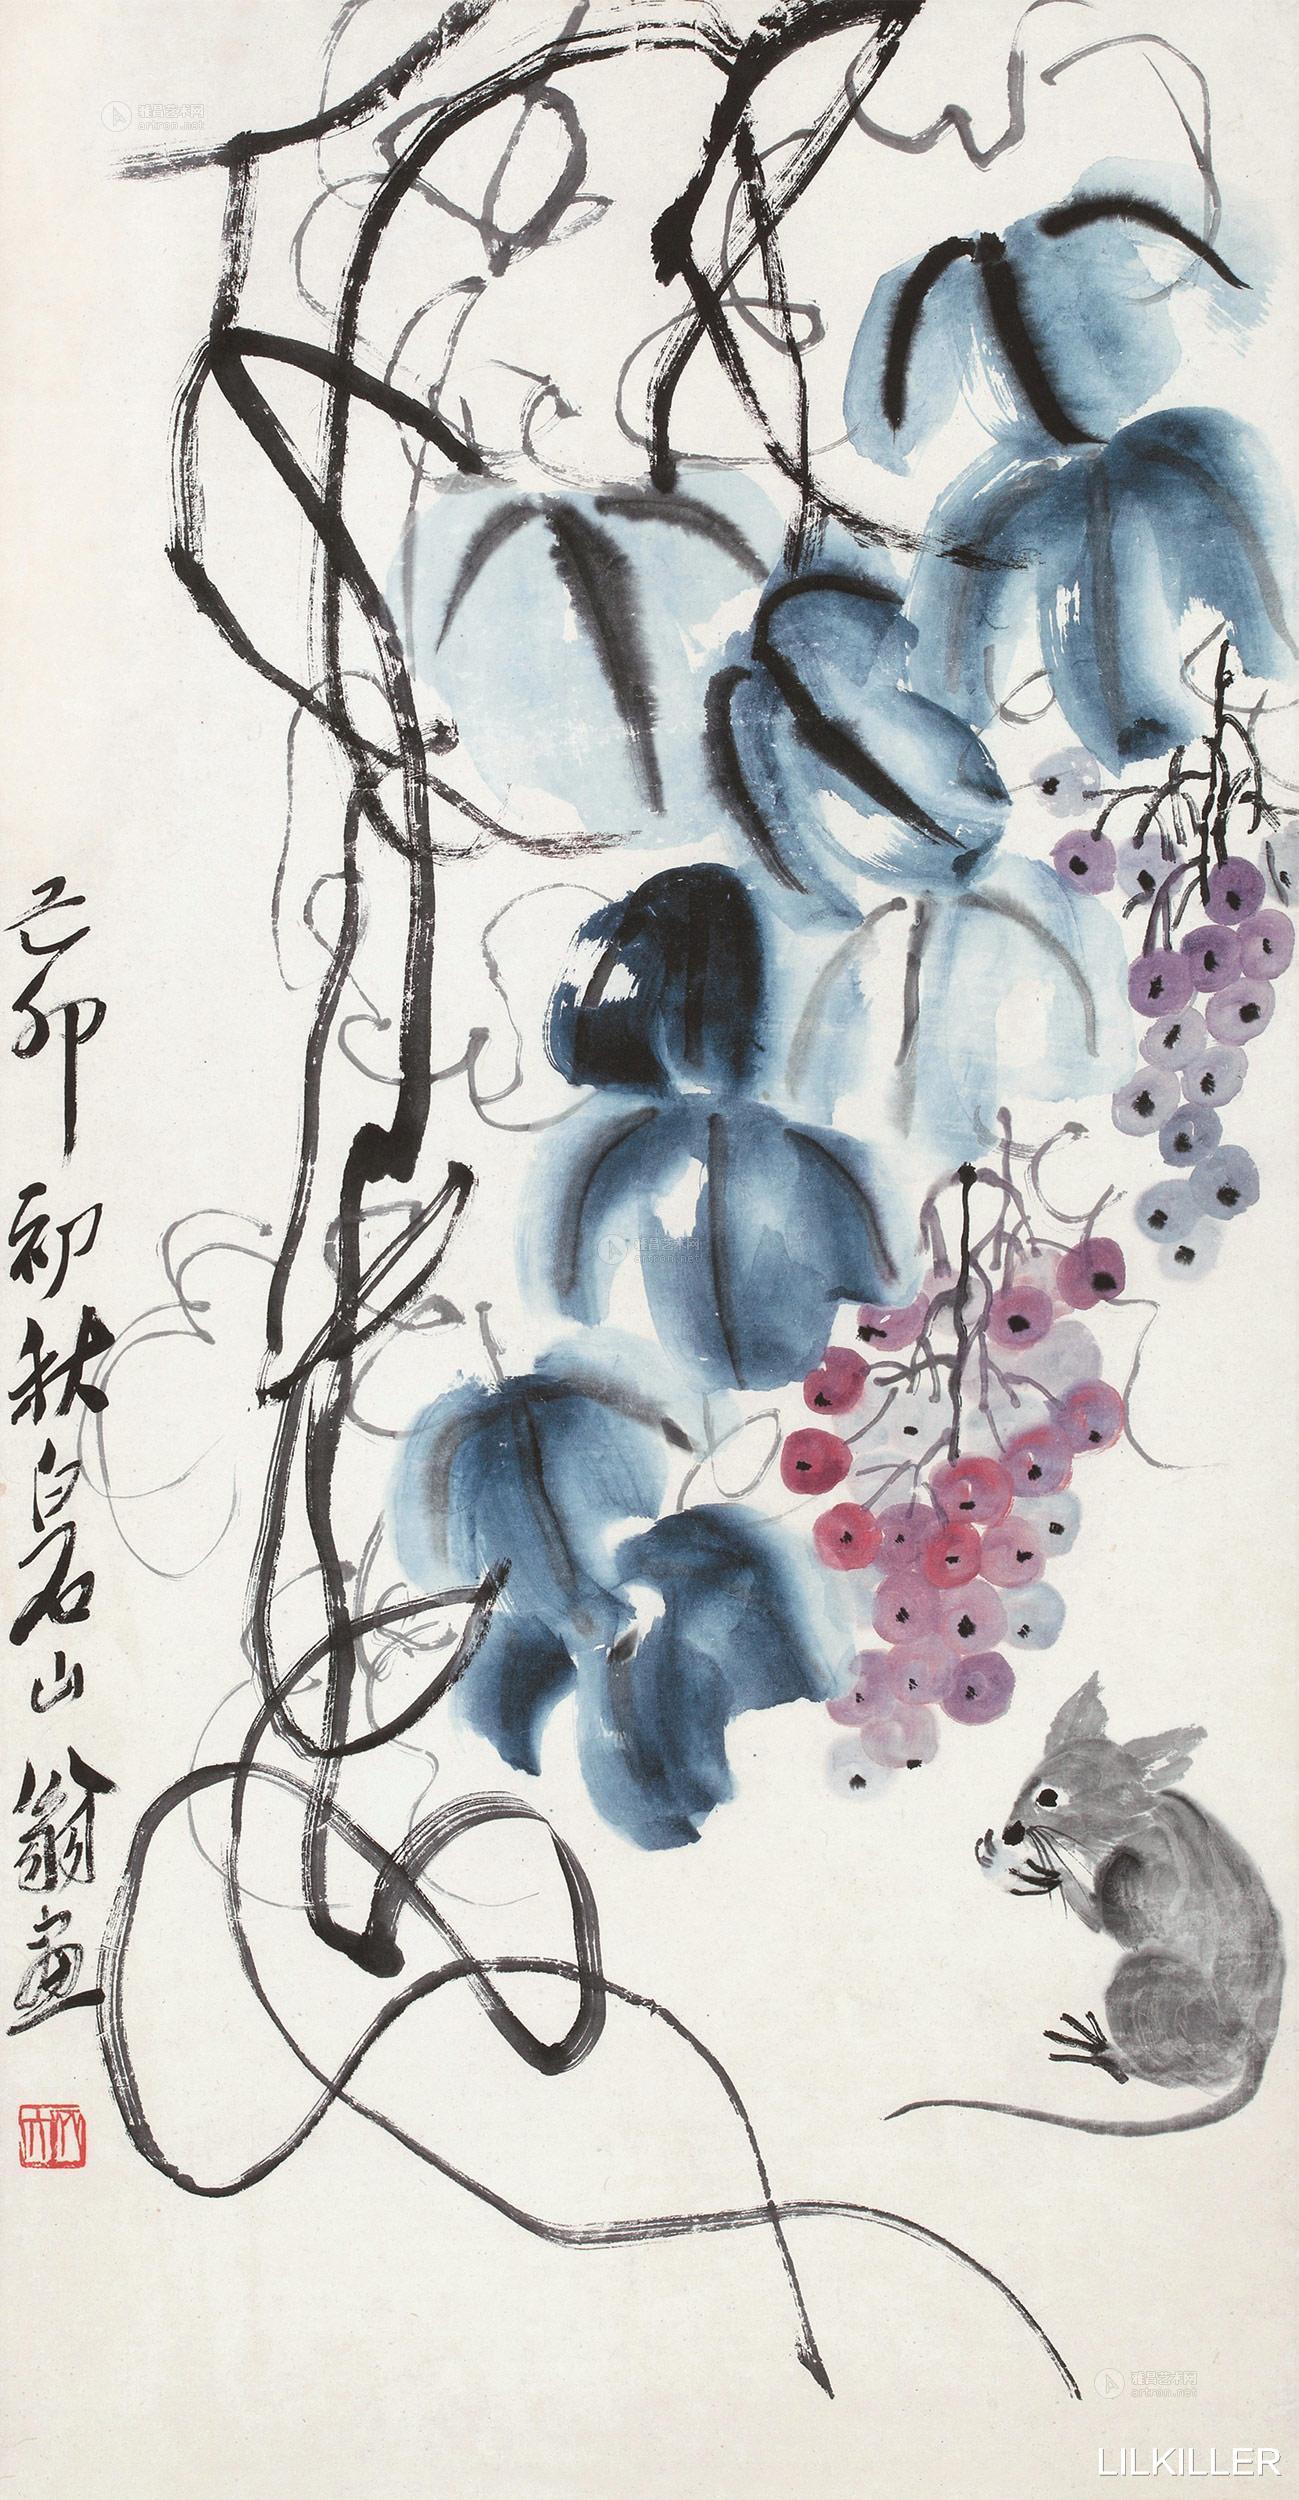 雅昌艺术网
artron.net
己卯初秋白石山翁画
雅昌艺术网
artron.net
雅昌艺术网
artron.net
LILKILLER